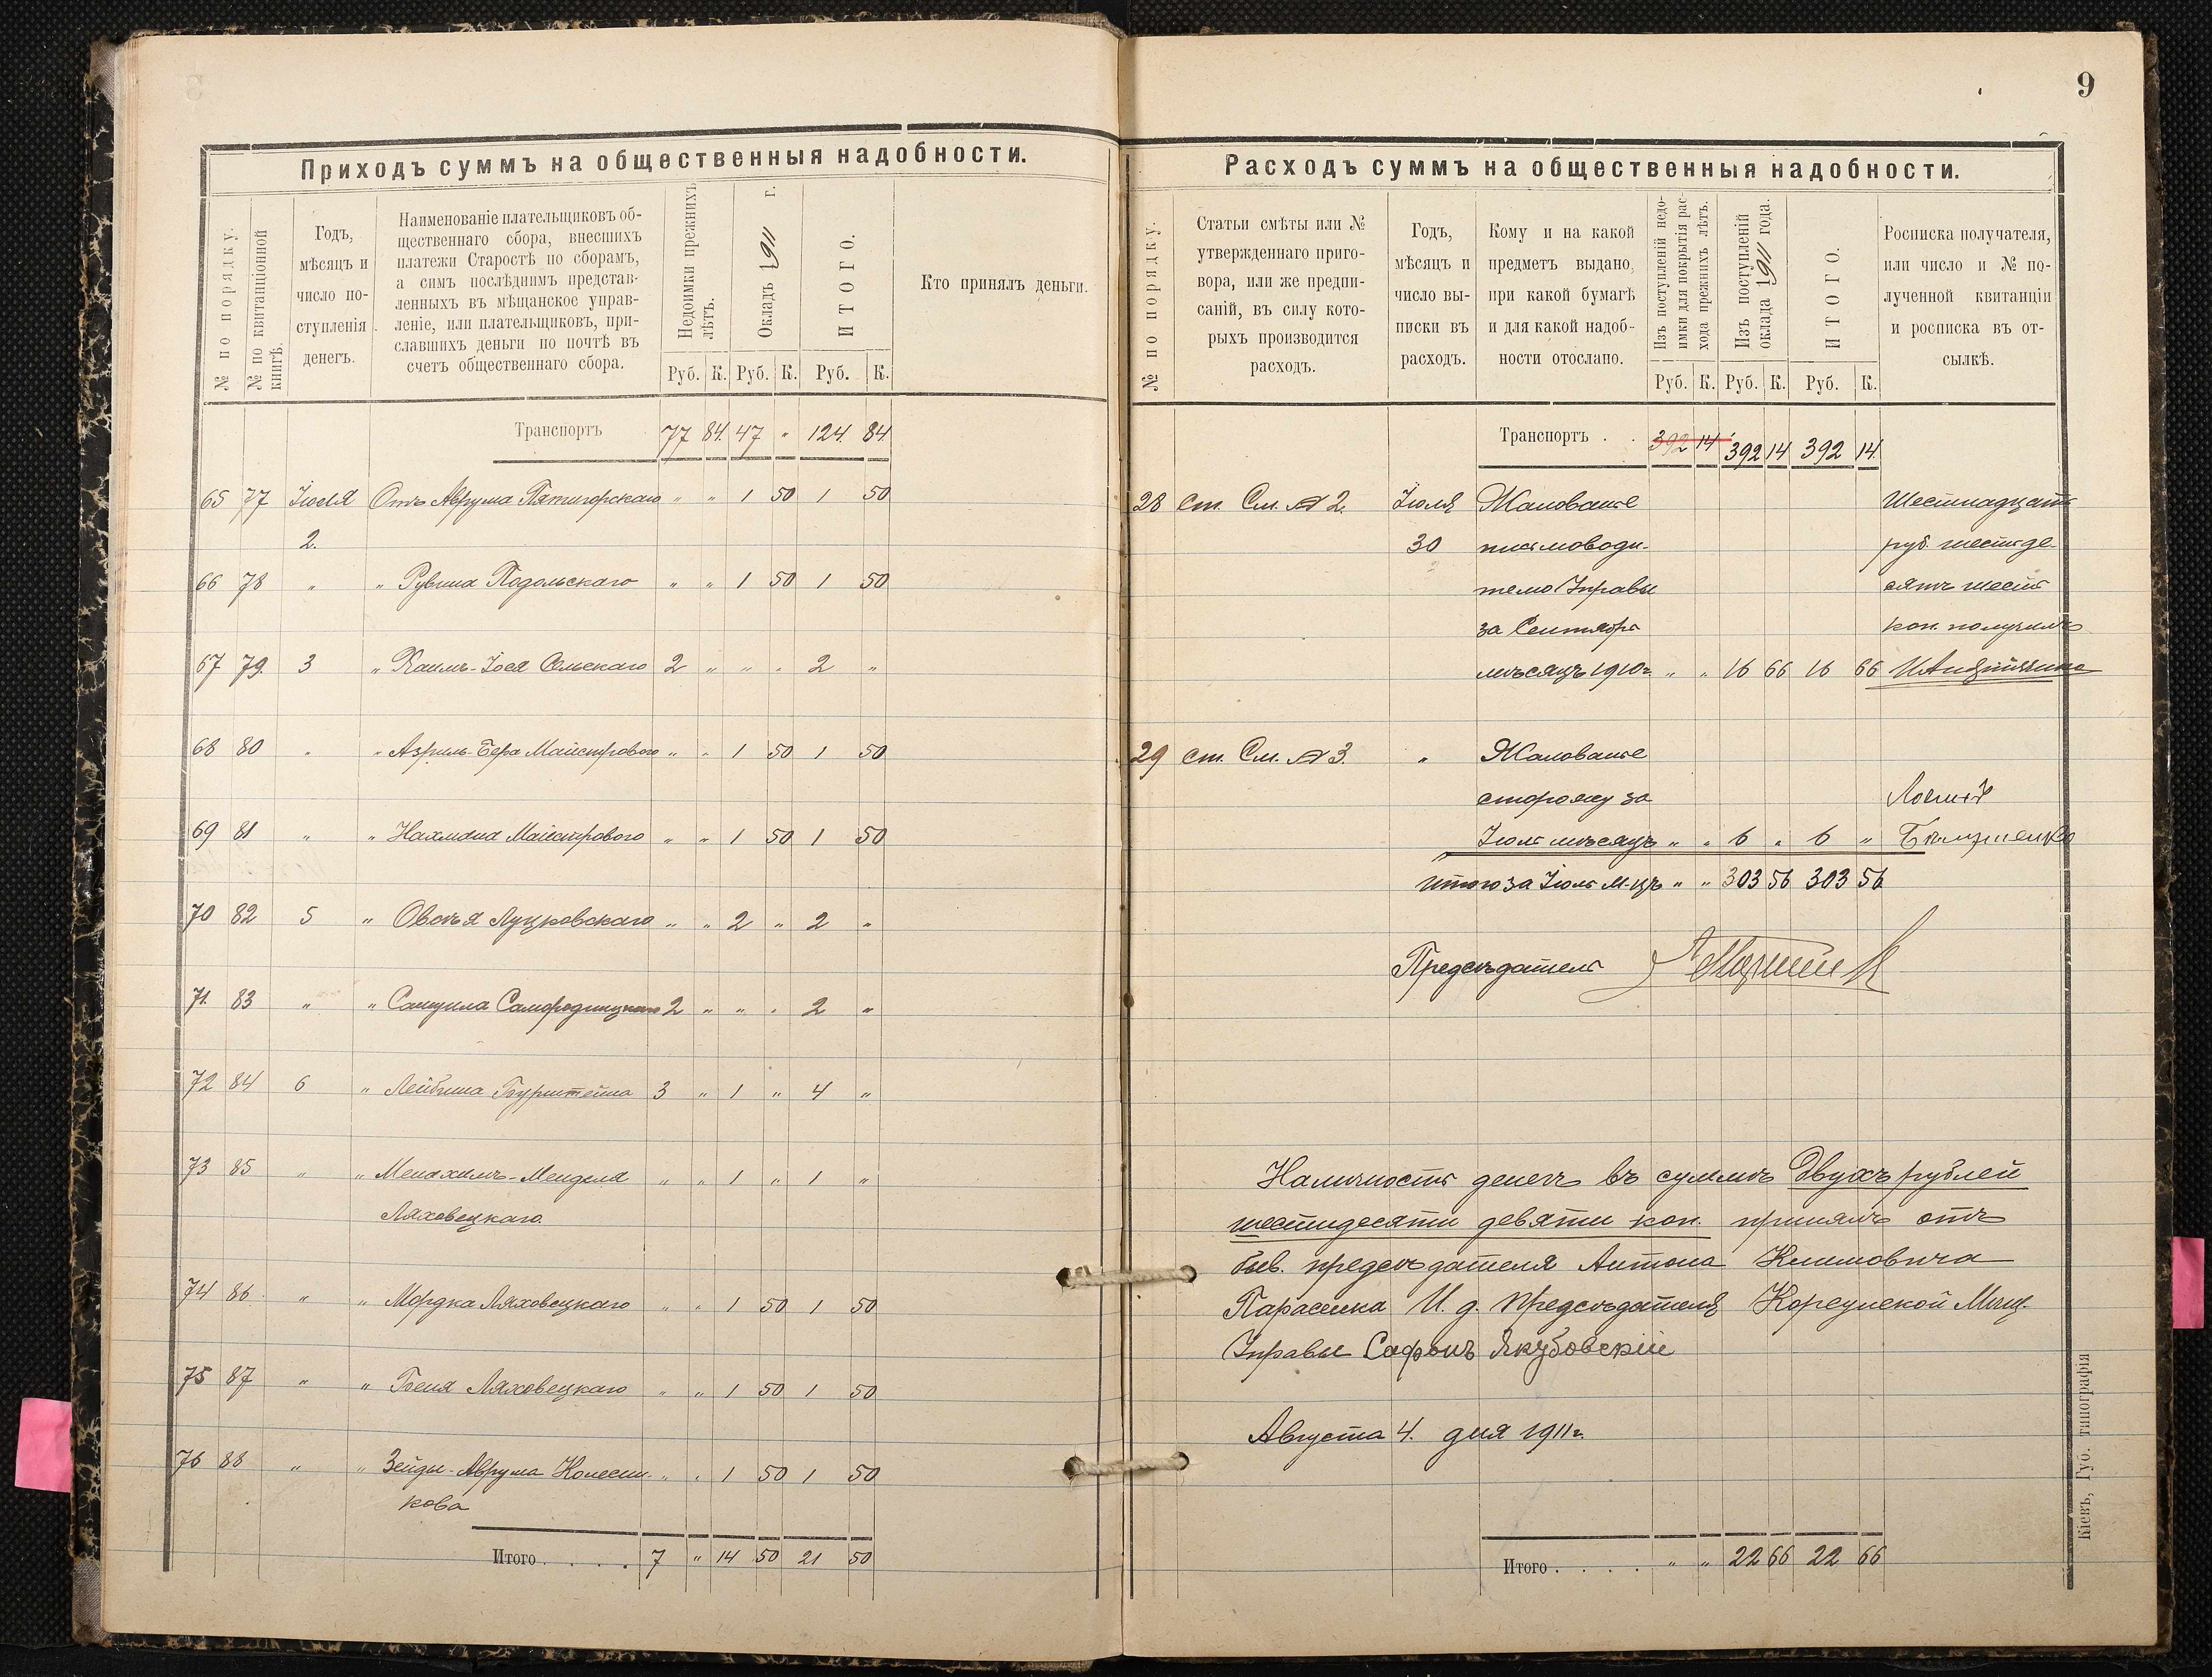 9
Приходъ суммъ на общественныя надобности.
№ по порядку.
№ по квитанціонной книгѣ.
Годъ,
мѣсяцъ и
число по-
ступленія
денегъ.
Наименованіе плательщиковъ об-
щественнаго сбора, внесшихъ
платежи Старостѣ по сборамъ,
а симъ послѣднимъ представ-
ленныхъ въ мѣщанское управ-
леніе, или плательщиковъ, при-
славшихъ деньги по почтѣ въ
счетъ общественнаго сбора.
Недоимки прежнихъ
лѣтъ.
Окладъ 1911 г.
ИТОГО.
Кто принялъ деньги.
Руб. К. Руб. К. Руб. К.
Транспортъ 77 84 47 " 124 84
65 77 Іюля Отъ Аврума Пятигорскаго " " 1 50 1 50
2.
66 78 " " Рувина Подольскаго " " 1 50 1 50
67 79. 3 " Хаимъ-Іося Сельскаго 2 " " " 2 "
68 80 " " Азриль-Бера Майстрового " " 1 50 1 50
69 81 " " Нахмана Майстрового " " 1 50 1 50
70 82 5 " Овсѣя Луцковскаго " " 2 " 2 "
71. 83 " " Самуила Самородницкаго 2 " " " 2 "
72 84 6 " Лейбиша Бурштейна 3 " 1 " 4 "
73 85 " " Менахимъ-Менделя " " 1 " 1 "
Ляховецкаго.
74 86. " " Мордка Ляховецкаго " " 1 50 1 50
75 87 " " Беня Ляховецкаго " " 1 50 1 50
76 88 " " Зейды-Аврума Колесни- " " 1 50 1 50
кова
Итого . . . . 7 " 14 50 21 50
Расходъ суммъ на общественныя надобности.
№ по порядку.
Статьи смѣты или №
утвержденнаго приго-
вора, или же предпи-
саній, въ силу кото-
рыхъ производится
расходъ.
Годъ,
мѣсяцъ и
число вы-
писки въ
расходъ.
Кому и на какой
предметъ выдано,
при какой бумагѣ
и для какой надоб-
ности отослано.
Изъ поступленій недо-
имки для покрытія рас-
хода прежнихъ лѣтъ.
Изъ поступленій
оклада 1911 года.
ИТОГО.
Росписка получателя,
или число и № по-
лученной квитанціи
и росписка въ от-
сылкѣ.
Руб. К. Руб. К. Руб. К.
Транспортъ . . 392 14 392 14 392 14.
28 ст. См. № 2. Іюля Жалованье Шестнадцать
30 письмоводи- руб. шестьде-
телю Управы сятъ шесть
за Сентябрь коп. получилъ
мѣсяцъ 1910 г. " " 16 66 16 66
29 ст. См. № 3. " Жалованье
сторожу за
Іюль мѣсяцъ " " 6 " 6 "
Итого за Іюль м-цъ " " 303 56 303 56
Предсѣдатель
Наличность денегъ въ суммѣ двухъ рублей
шестидесяти девяти коп. принялъ отъ
быв. предсѣдателя Антона Климовича
Парасенка И. д. Предсѣдателя Корсунской Мѣщ.
Управы Сафонъ Якубовскій
Августа 4. дня 1911 г.
Итого . . . . " " 22 66 22 66
Кіевъ, Губ. типографія